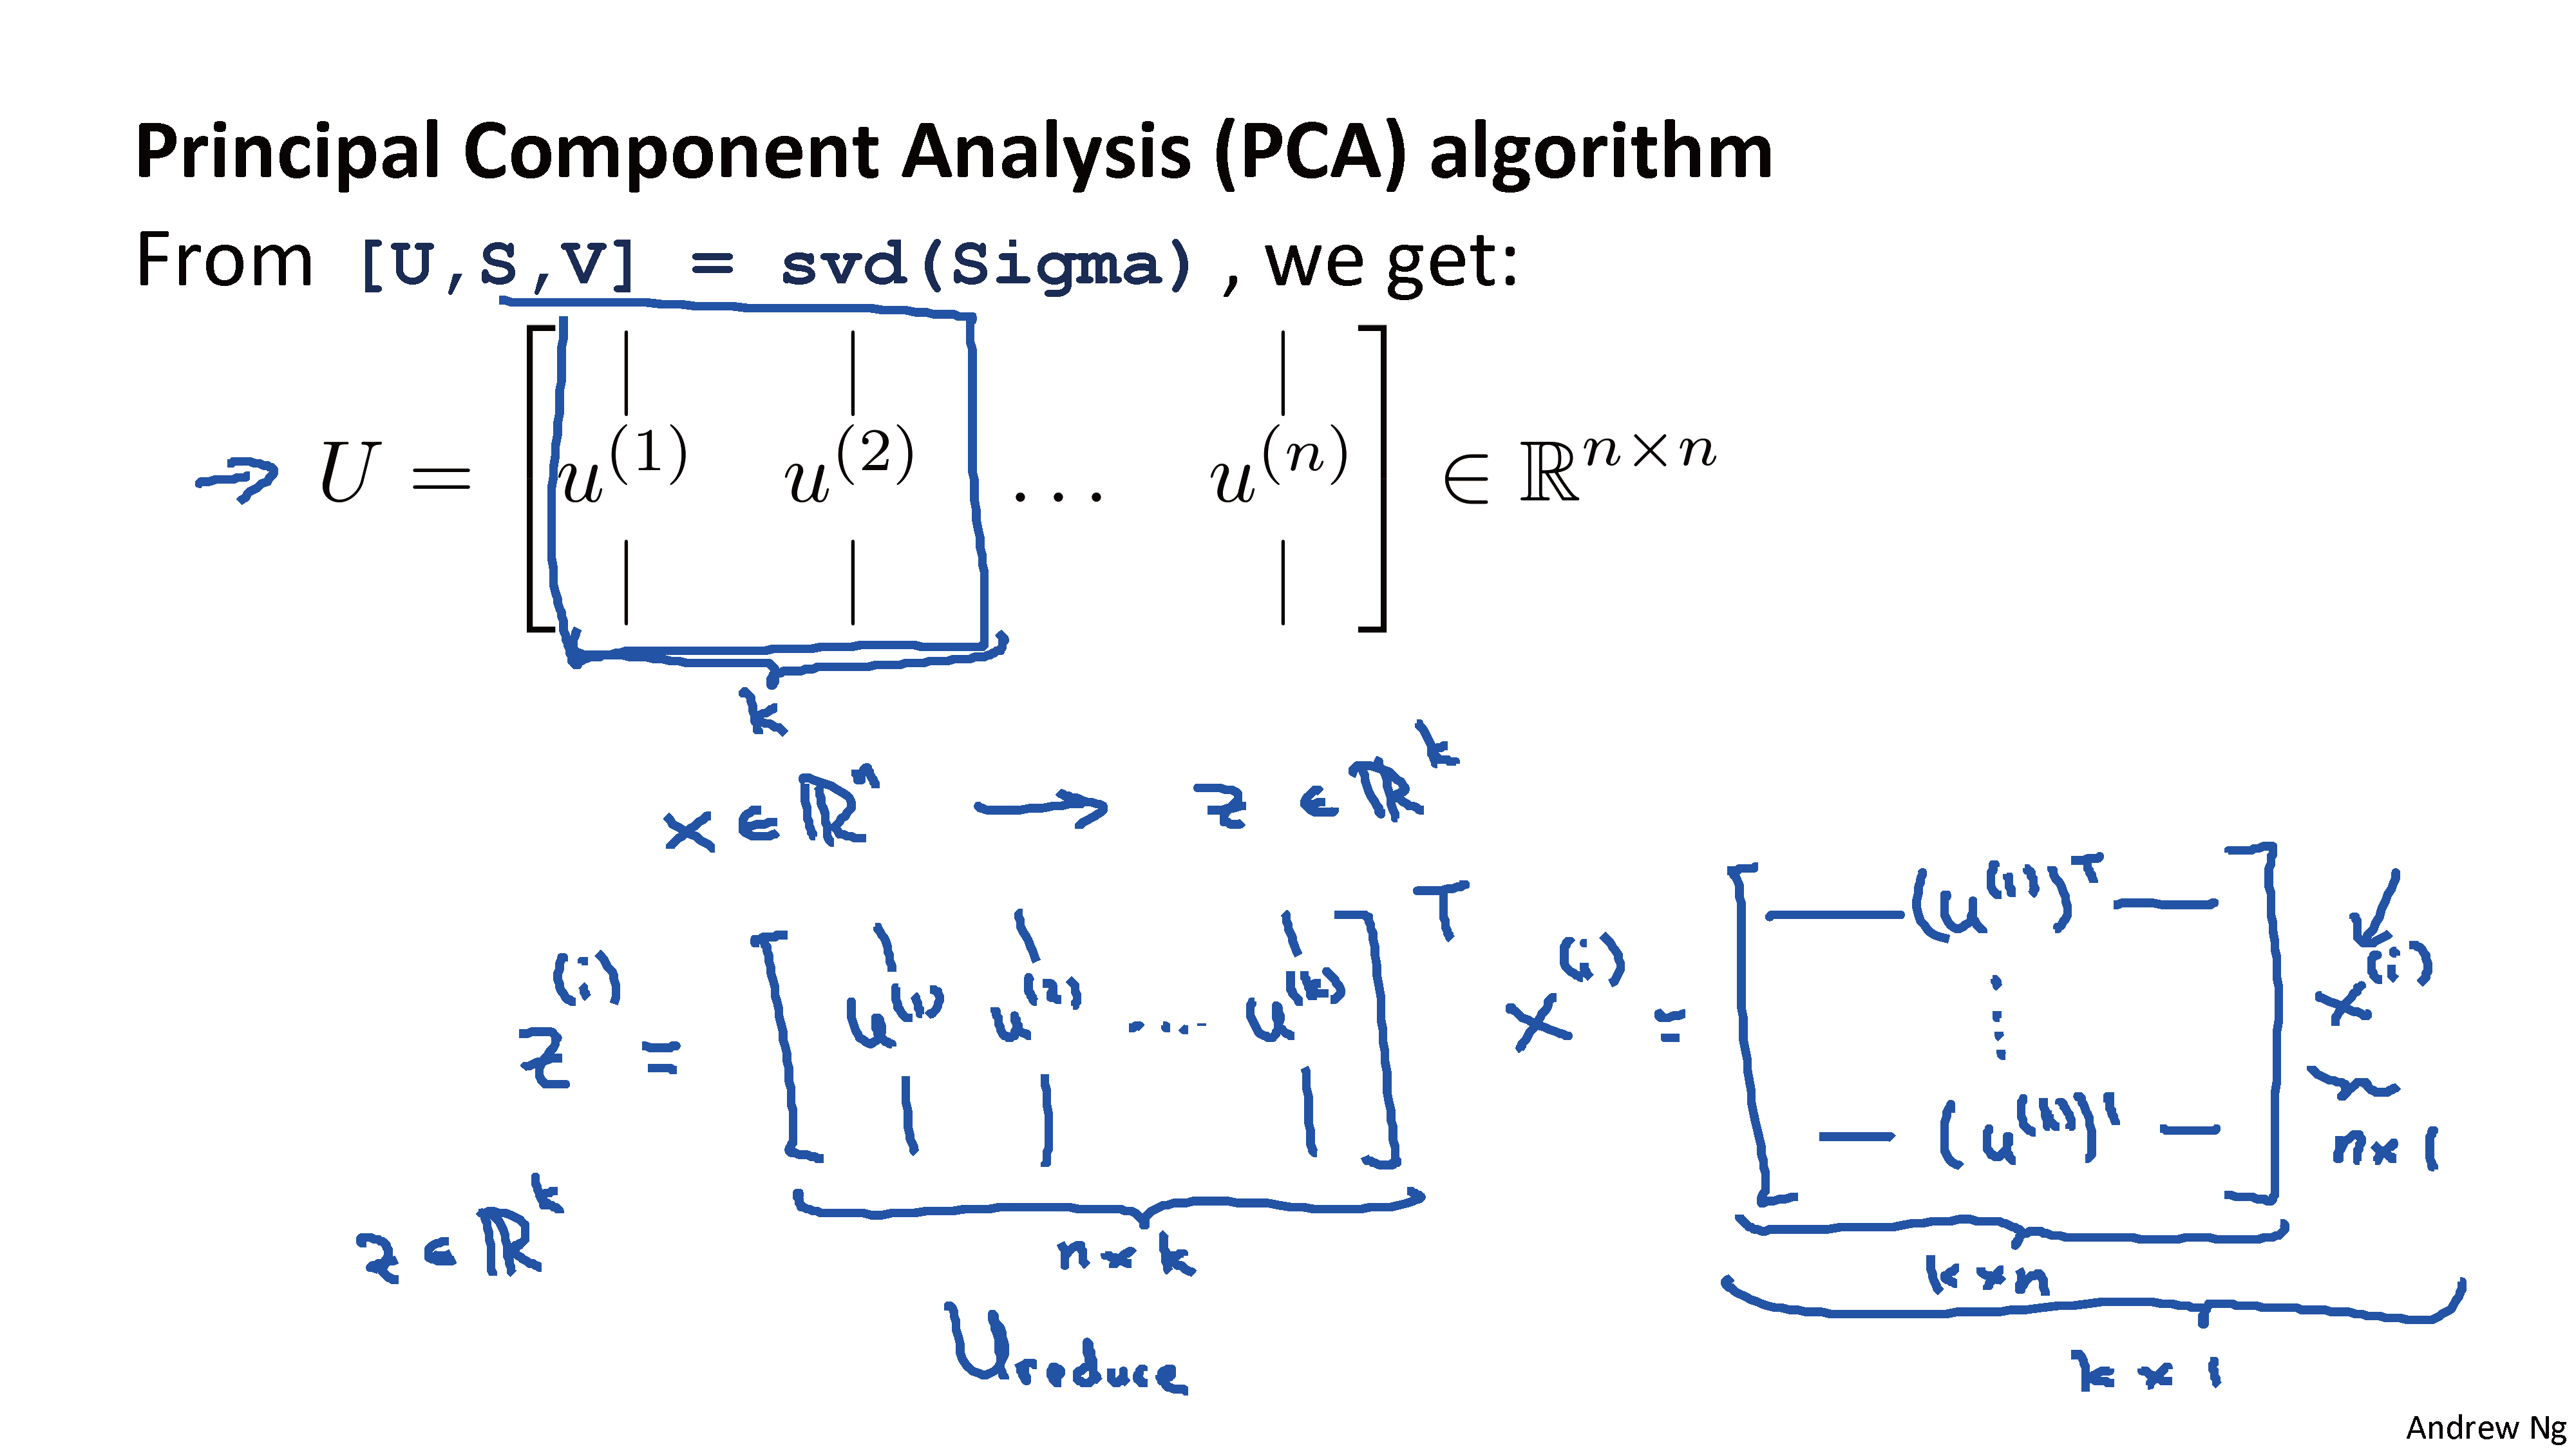 Principal Component Analysis (PCA) algorithm
From [U,S,V] = svd(Sigma) , we get:
⇒ U = [ u^(1) u^(2) … u^(n) ] ∈ ℝ^{n×n}
k
x ∈ ℝ^n → z ∈ ℝ^k
z^(i) = [ u^(1) u^(2) … u^(k) ]^T x^(i) = [ (u^(1))^T ⋮ (u^(k))^T ] x^(i)
n×1
z ∈ ℝ^k
n×k
k×n
U reduce
k×1
Andrew Ng